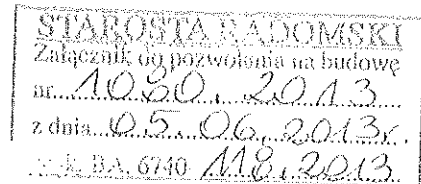 STAROSTA RADOMSKI
Załącznik do pozwolenia na budowę
nr 1080.2013
z dnia 05.06.2013r.
BA. 6740.118.2013